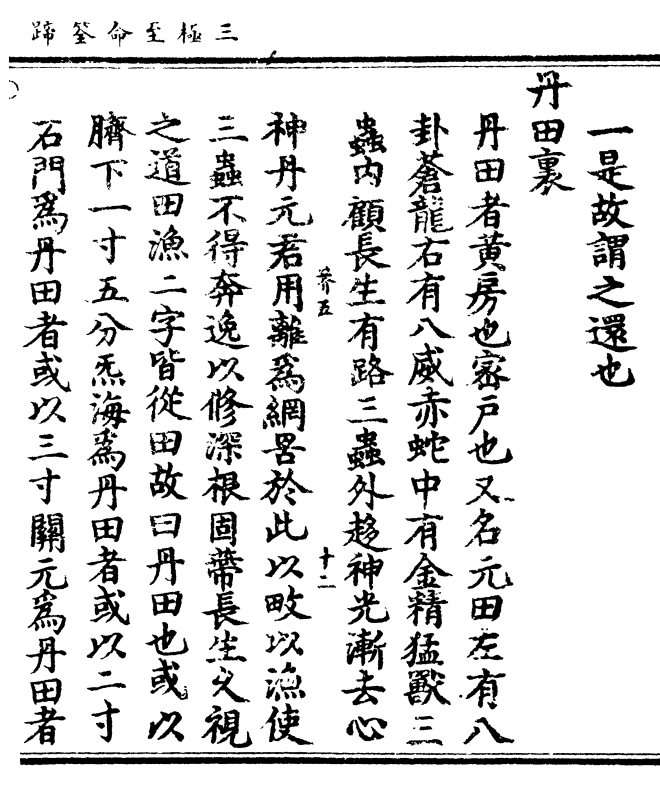 三極至命筌蹄
一是故謂之還也
丹田裏
丹田者黃房也密戸也又名元田左有八
卦蒼龍右有八威赤蛇中有金精猛獸三
蟲內顧長生有路三蟲外趍神光漸去心
葊五
十二
神丹元君用離為網罟於此以畋以漁使
三蟲不得奔逸以修深根固蔕長生久視
之道田漁二字皆從田故曰丹田也或以
臍下一寸五分炁海為丹田者或以二寸
石門為丹田者或以三寸關元為丹田者